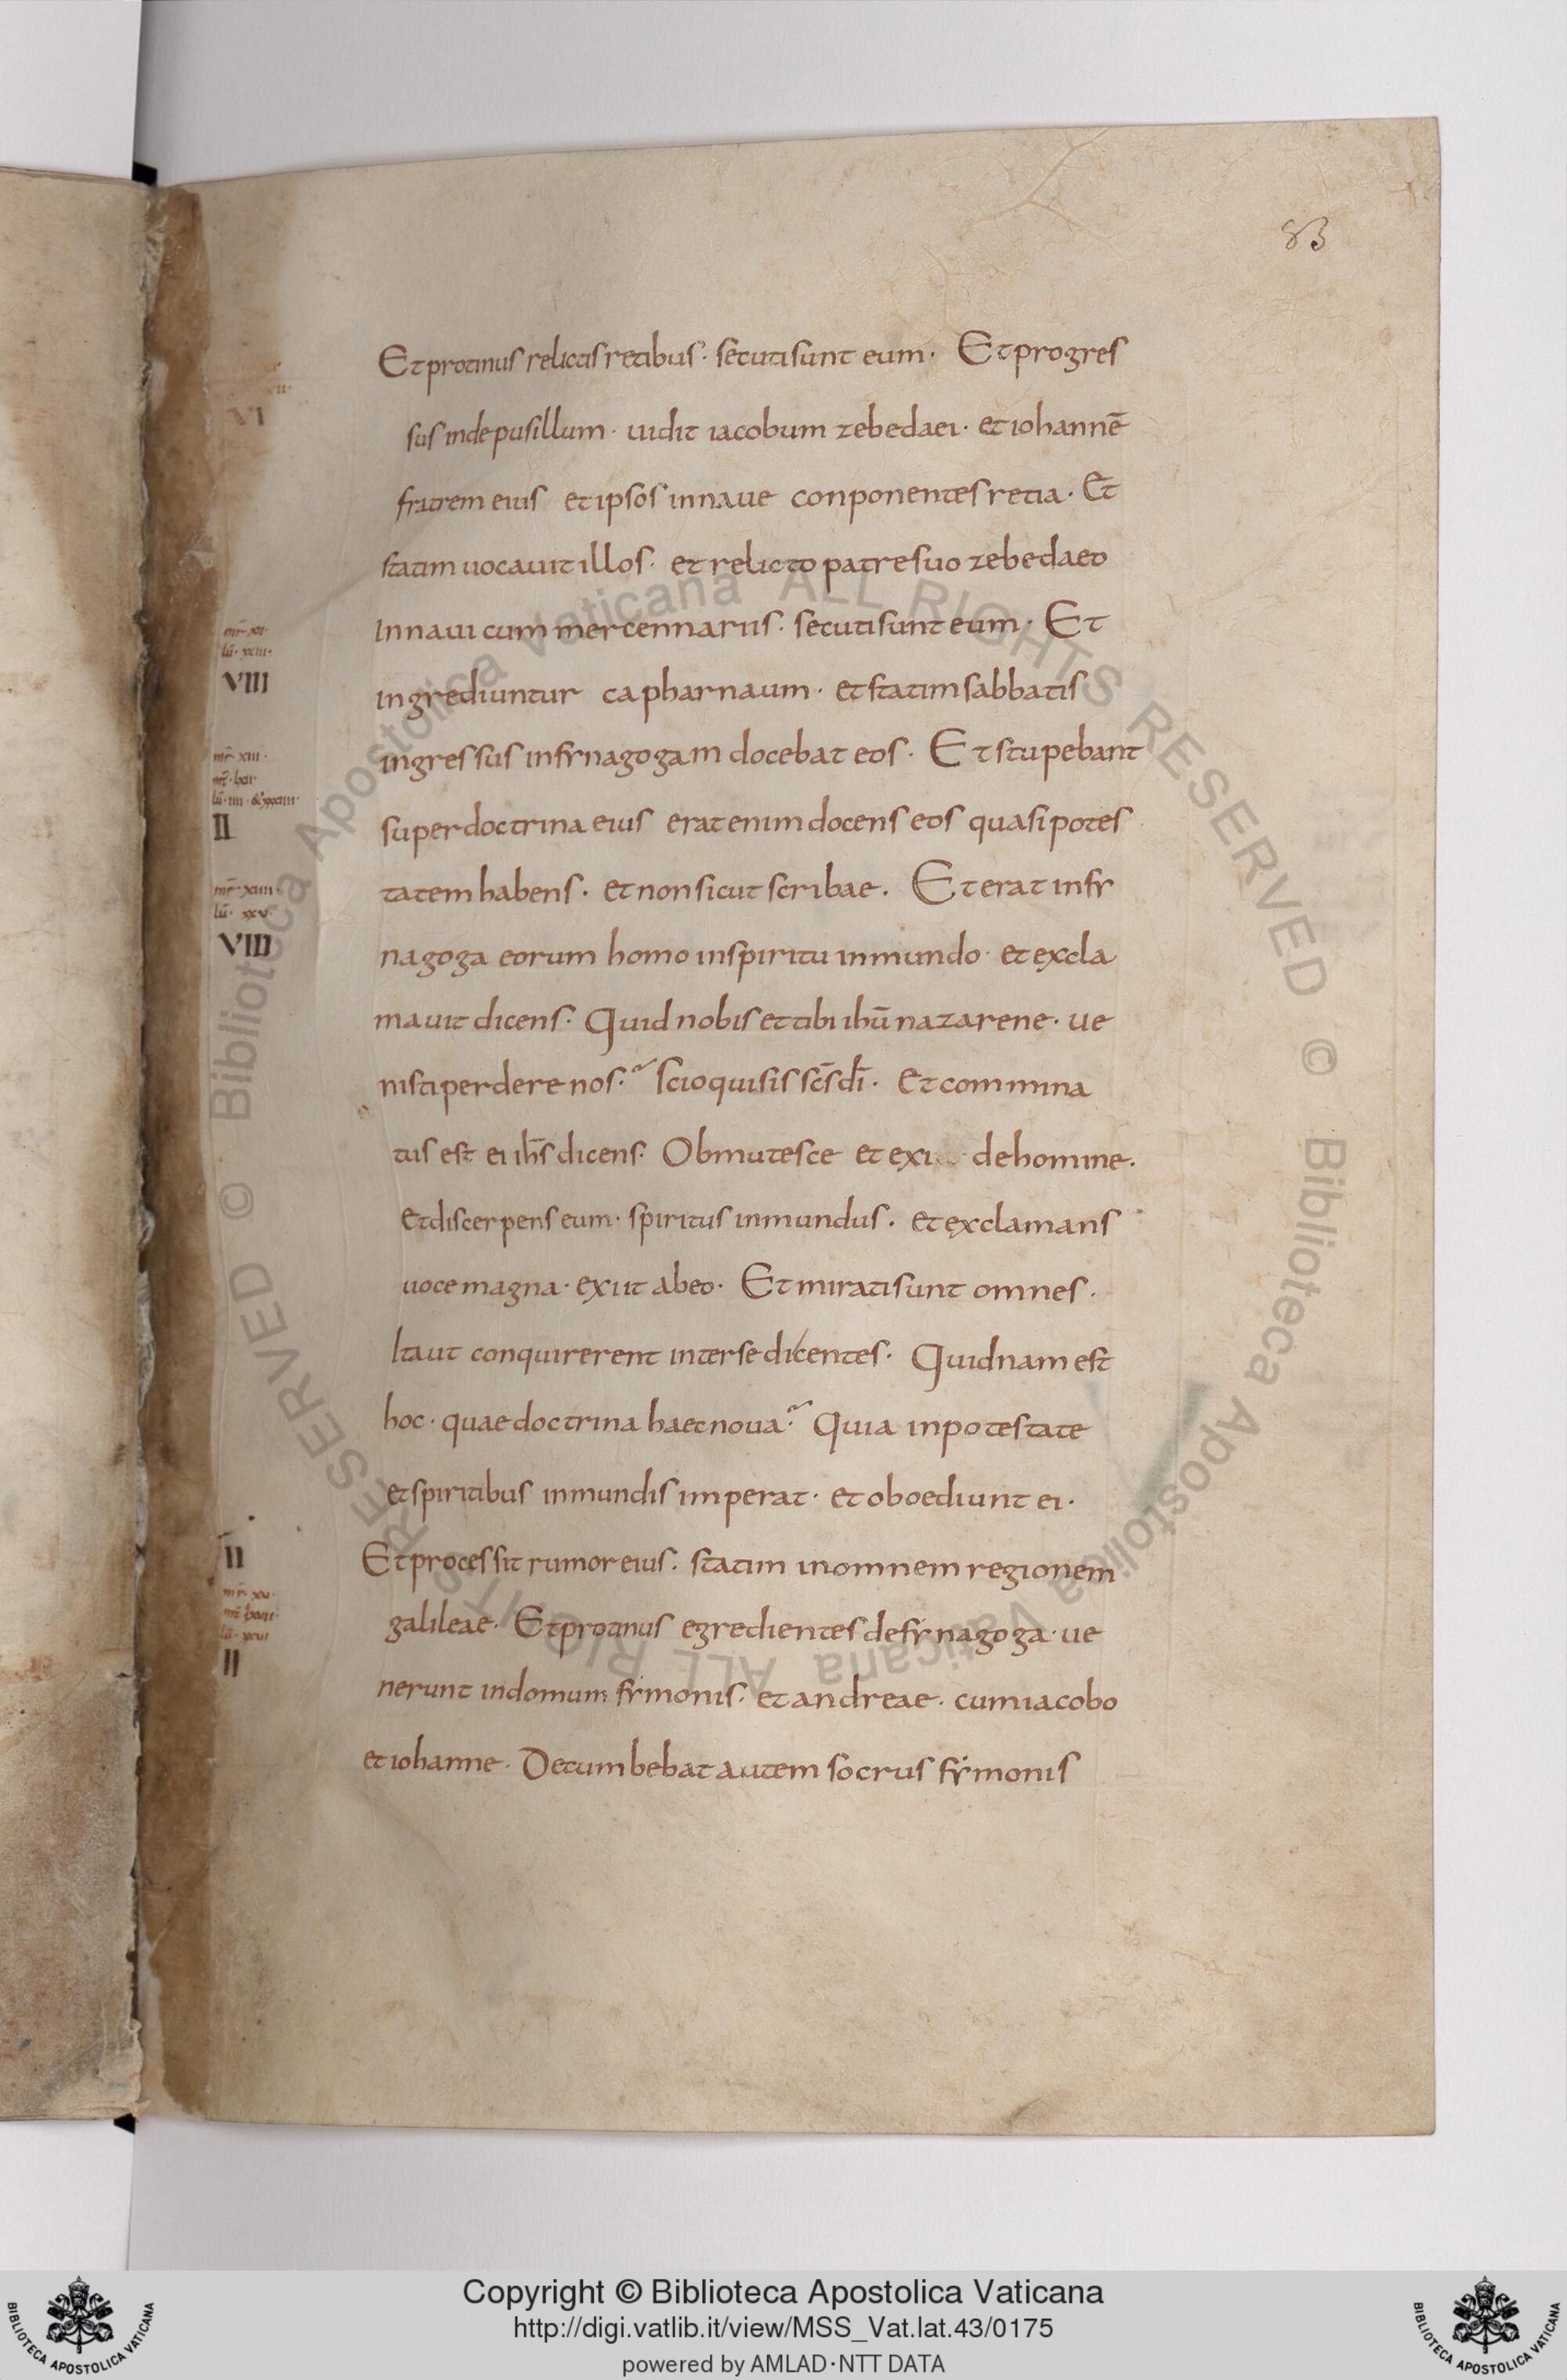 83
Et protinus relictis retibus · secuti sunt eum · Et progres
sus inde pusillum · uidit iacobum zebedaei · et iohannē
fratrem eius et ipsos in naue conponentes retia · Et
statim uocauit illos · et relicto patre suo zebedaeo
In naui cum mercennariis · secuti sunt eum · Et
ingrediuntur capharnaum · et statim sabbatis
ingressus in synagogam docebat eos · Et stupebant
super doctrina eius erat enim docens eos quasi potes
tatem habens · et non sicut scribae · Et erat in sy
nagoga eorum homo in spiritu inmundo · et excla
mauit dicens · Quid nobis et tibi ihū nazarene · ue
nisti perdere nos ? scio qui sis sc̄s dī · Et commina
tus est ei ih̄s dicens · Obmutesce et exi de homine ·
et discerpens eum · spiritus inmundus · et exclamans
uoce magna · exiit ab eo · Et mirati sunt omnes ·
Ita ut conquirerent inter se dicentes · Quidnam est
hoc · quae doctrina haec noua ? Quia in potestate
et spiritibus inmundis imperat · et oboediunt ei ·
Et processit rumor eius · statim in omnem regionem
galileae · Et protinus egredientes de synagoga · ue
nerunt in domum symonis · et andreae · cum iacobo
et iohanne · Decumbebat autem socrus symonis
VI
VIII
II
VIII
II
II
© Biblioteca Apostolica Vaticana ALL RIGHTS RESERVED
© Biblioteca Apostolica Vaticana ALL RIGHTS RESERVED
Copyright © Biblioteca Apostolica Vaticana
http://digi.vatlib.it/view/MSS_Vat.lat.43/0175
powered by AMLAD·NTT DATA
BIBLIOTECA APOSTOLICA VATICANA
BIBLIOTECA APOSTOLICA VATICANA